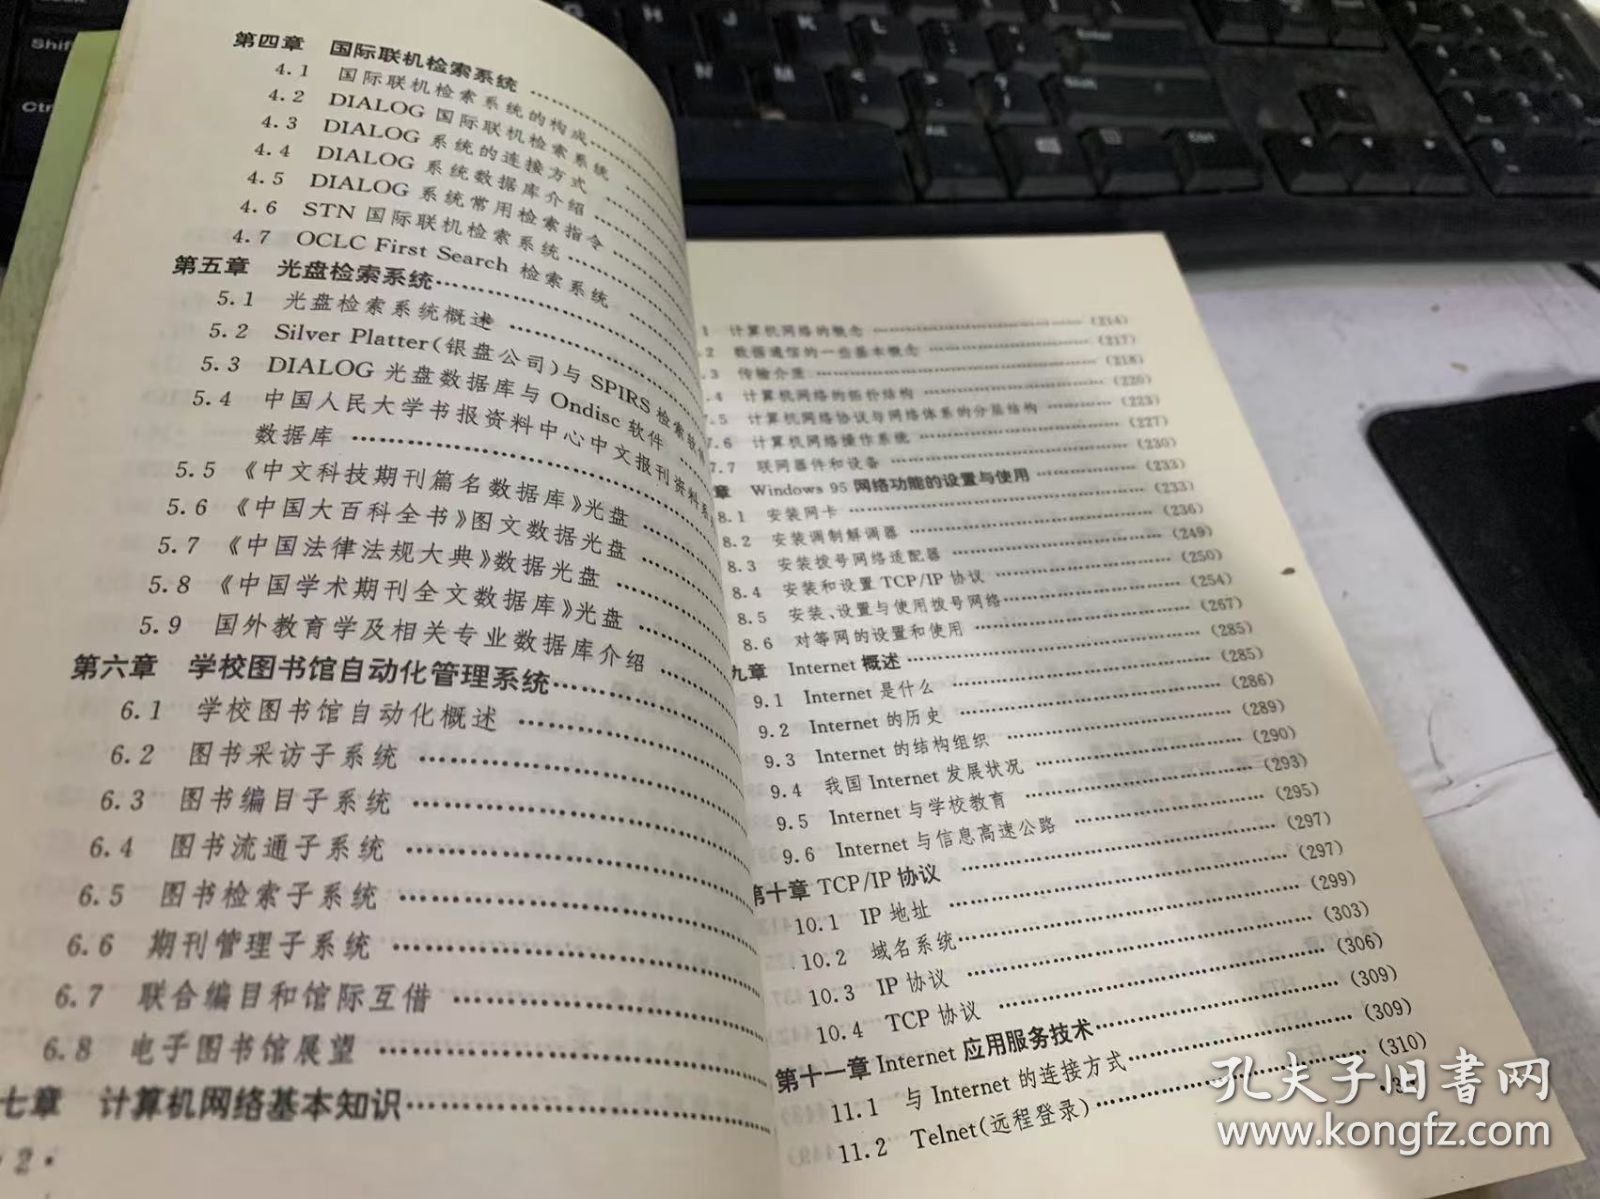 第四章 国际联机检索系统
4.1 国际联机检索系统的构成
4.2 DIALOG 国际联机检索系统
4.3 DIALOG 系统的连接方式
4.4 DIALOG 系统数据库介绍
4.5 DIALOG 系统常用检索指令
4.6 STN 国际联机检索系统
4.7 OCLC First Search 检索系统
第五章 光盘检索系统
5.1 光盘检索系统概述
5.2 Silver Platter(银盘公司)与 SPIRS 检索软
5.3 DIALOG 光盘数据库与 Ondisc 软件
5.4 中国人民大学书报资料中心中文报刊资料系
数据库
5.5 《中文科技期刊篇名数据库》光盘
5.6 《中国大百科全书》图文数据光盘
5.7 《中国法律法规大典》数据光盘
5.8 《中国学术期刊全文数据库》光盘
5.9 国外教育学及相关专业数据库介绍
第六章 学校图书馆自动化管理系统
6.1 学校图书馆自动化概述
6.2 图书采访子系统
6.3 图书编目子系统
6.4 图书流通子系统
6.5 图书检索子系统
6.6 期刊管理子系统
6.7 联合编目和馆际互借
6.8 电子图书馆展望
七章 计算机网络基本知识
· 2 ·
1 计算机网络的概念 (214)
.2 数据通信的一些基本概念 (217)
.3 传输介质 (218)
.4 计算机网络的拓扑结构 (220)
7.5 计算机网络协议与网络体系的分层结构 (223)
7.6 计算机网络操作系统 (227)
7.7 联网器件和设备 (230)
章 Windows 95 网络功能的设置与使用 (233)
8.1 安装网卡 (233)
8.2 安装调制解调器 (236)
8.3 安装拨号网络适配器 (249)
8.4 安装和设置 TCP/IP 协议 (250)
8.5 安装、设置与使用拨号网络 (254)
8.6 对等网的设置和使用 (267)
九章 Internet 概述 (285)
9.1 Internet 是什么 (285)
9.2 Internet 的历史 (286)
9.3 Internet 的结构组织 (289)
9.4 我国 Internet 发展状况 (290)
9.5 Internet 与学校教育 (293)
9.6 Internet 与信息高速公路 (295)
第十章 TCP/IP 协议 (297)
10.1 IP 地址 (297)
10.2 域名系统 (299)
10.3 IP 协议 (303)
10.4 TCP 协议 (306)
第十一章 Internet 应用服务技术 (309)
11.1 与 Internet 的连接方式 (309)
11.2 Telnet(远程登录) (310)
孔夫子旧书网
www.kongfz.com